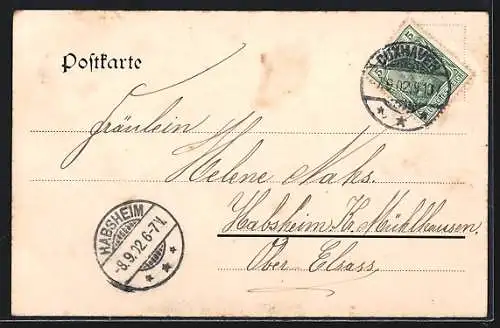 Postkarte
CUXHAVEN
9.02.9-10
Fräulein
Helene Nahs.
Habsheim Kr. Mühlhausen
Ober Elsass
HABSHEIM
-8.9.02.6-7N.